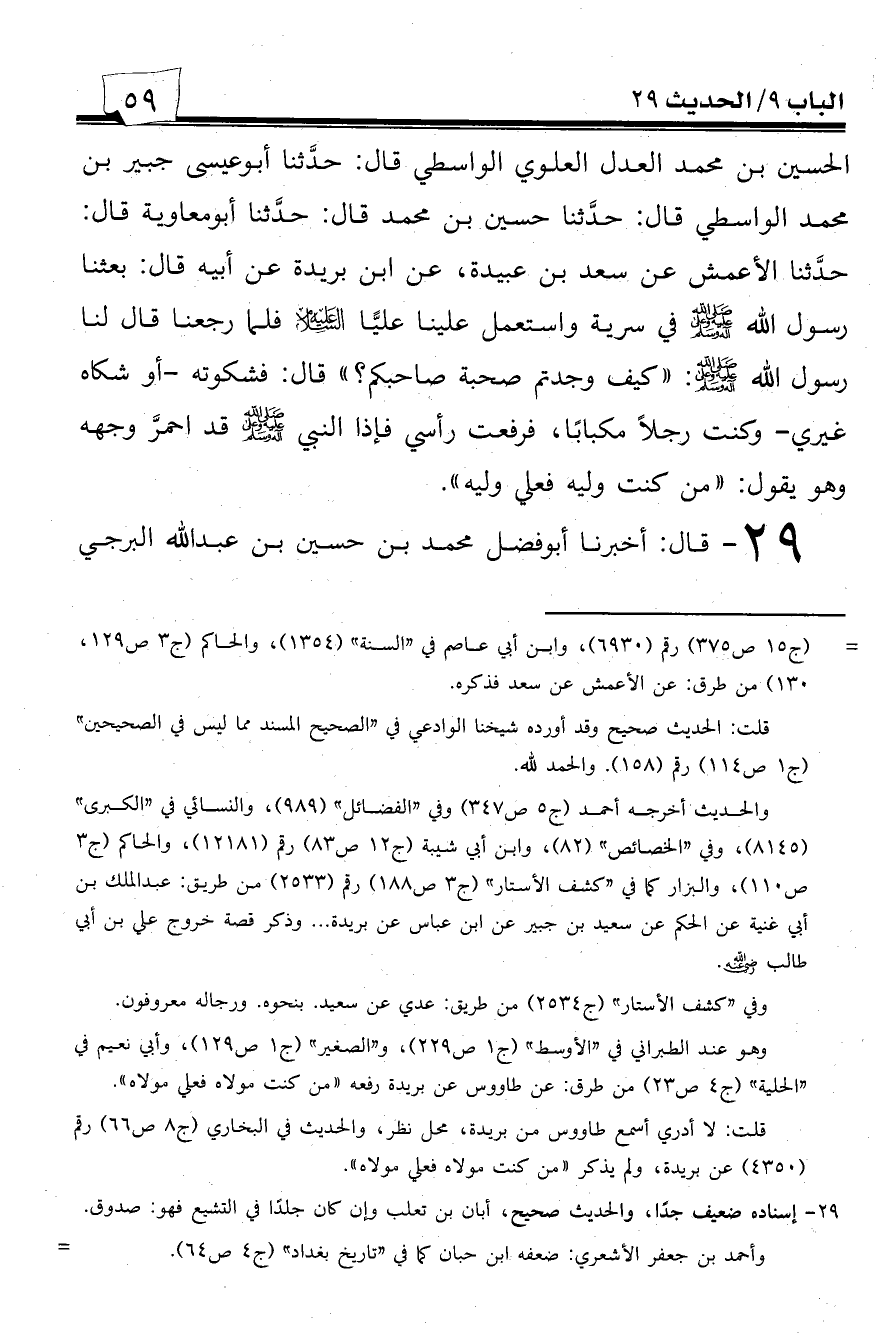 الباب ٩/ الحديث ٢٩
٥٩
الحسين بن محمد العدل العلوي الواسطي قال: حدَّثنا أبوعيسى جبير بن
محمد الواسطي قال: حدَّثنا حسين بن محمد قال: حدَّثنا أبومعاوية قال:
حدَّثنا الأعمش عن سعد بن عبيدة، عن ابن بريدة عن أبيه قال: بعثنا
رسول الله ﷺ في سرية واستعمل علينا عليًّا عليه السلام فلما رجعنا قال لنا
رسول الله ﷺ: «كيف وجدتم صحبة صاحبكم؟» قال: فشكوته -أو شكاه
غيري- وكنت رجلاً مكبابًا، فرفعت رأسي فإذا النبي ﷺ قد احمرَّ وجهه
وهو يقول: «من كنت وليه فعلي وليه».
٢٩- قال: أخبرنا أبوفضل محمد بن حسين بن عبدالله البرجي
= (ج١٥ ص٣٧٥) رقم (٦٩٣٠)، وابن أبي عاصم في "السنة" (١٣٥٤)، والحاكم (ج٣ ص١٢٩،
١٣٠) من طرق: عن الأعمش عن سعد فذكره.
قلت: الحديث صحيح وقد أورده شيخنا الوادعي في "الصحيح المسند مما ليس في الصحيحين"
(ج١ ص١١٤) رقم (١٥٨). والحمد لله.
والحديث أخرجه أحمد (ج٥ ص٣٤٧) وفي "الفضائل" (٩٨٩)، والنسائي في "الكبرى"
(٨١٤٥)، وفي "الخصائص" (٨٢)، وابن أبي شيبة (ج١٢ ص٨٣) رقم (١٢١٨١)، والحاكم (ج٣
ص١١٠)، والبزار كما في "كشف الأستار" (ج٣ ص١٨٨) رقم (٢٥٣٣) من طريق: عبدالملك بن
أبي غنية عن الحكم عن سعيد بن جبير عن ابن عباس عن بريدة... وذكر قصة خروج علي بن أبي
طالب رضي الله عنه.
وفي "كشف الأستار" (ج٢٥٣٤) من طريق: عدي عن سعيد. بنحوه. ورجاله معروفون.
وهو عند الطبراني في "الأوسط" (ج١ ص٢٢٩)، و"الصغير" (ج١ ص١٢٩)، وأبي نعيم في
"الحلية" (ج٤ ص٢٣) من طرق: عن طاووس عن بريدة رفعه «من كنت مولاه فعلي مولاه».
قلت: لا أدري أسمع طاووس من بريدة، محل نظر، والحديث في البخاري (ج٨ ص٦٦) رقم
(٤٣٥٠) عن بريدة، ولم يذكر «من كنت مولاه فعلي مولاه».
٢٩- إسناده ضعيف جدًا، والحديث صحيح، أبان بن تعلب وإن كان جلدًا في التشيع فهو: صدوق.
وأحمد بن جعفر الأشعري: ضعفه ابن حبان كما في "تاريخ بغداد" (ج٤ ص٦٤). =